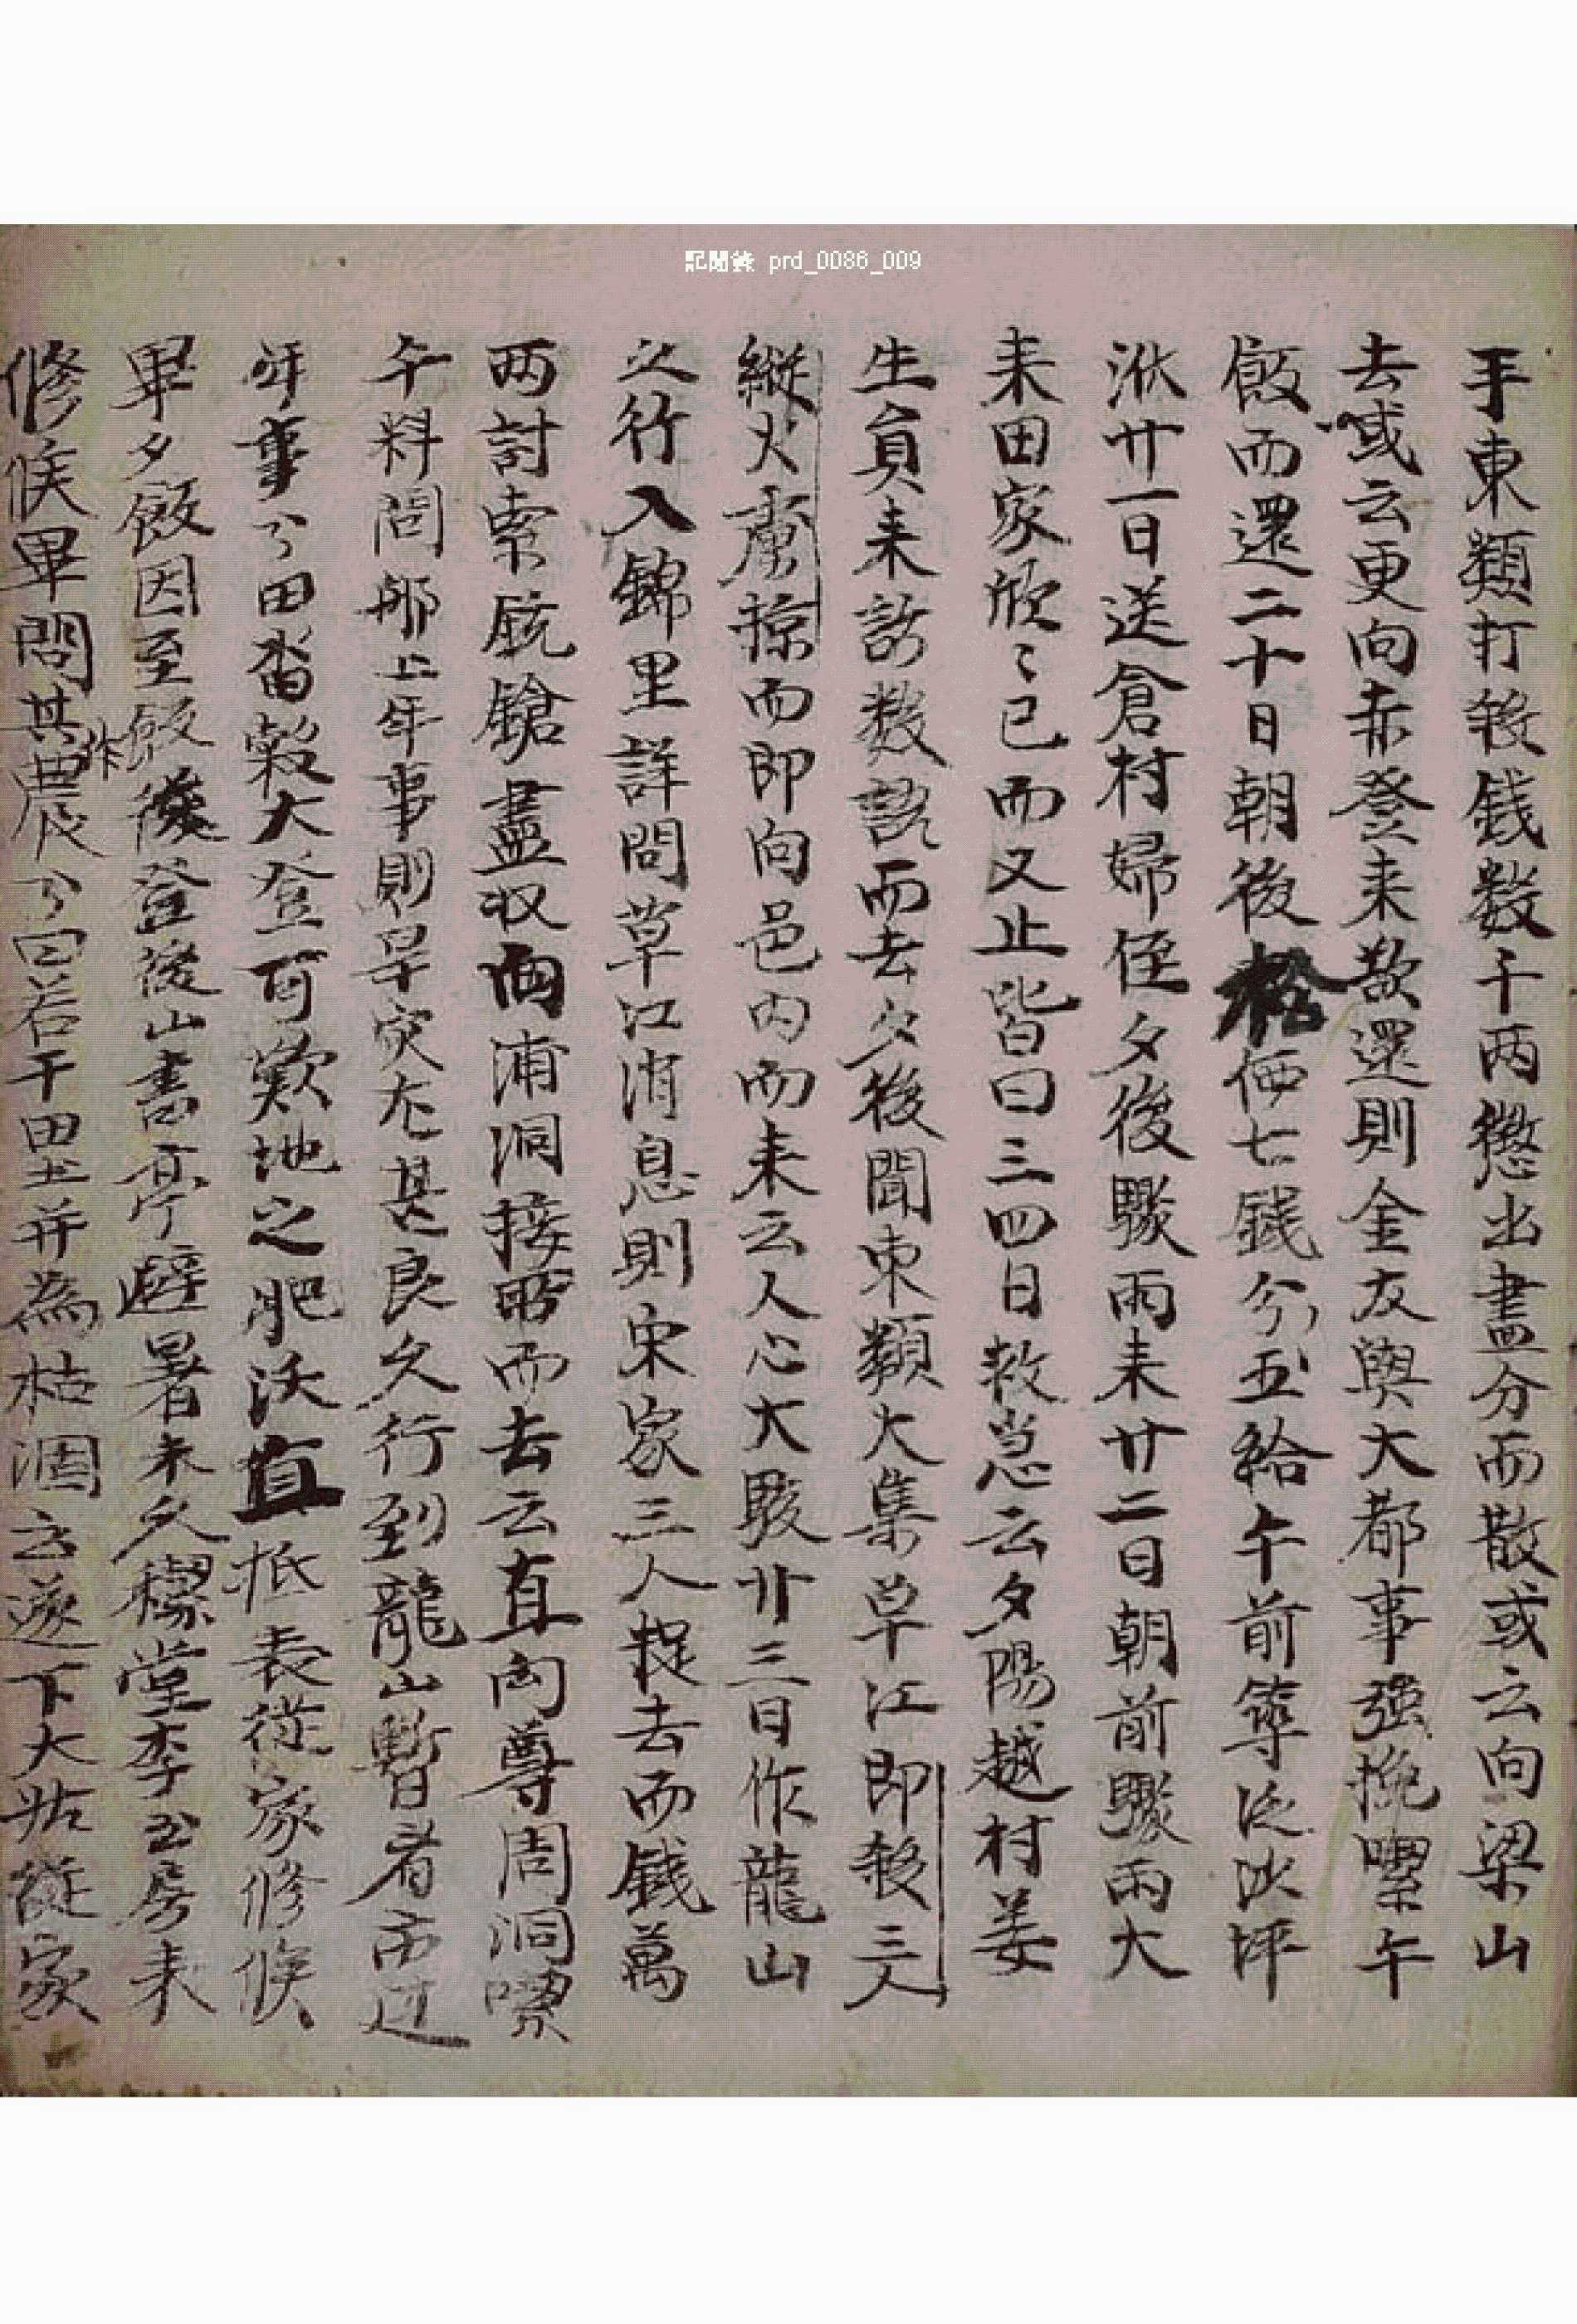 記聞錄 prd_0086_009
手東類打殺錢数千两懲出盡分而散或云向梁山
去或云更向赤登来歎還則金友與大都事强挽喫午
飯而還二十日朝後松価七錢分五給午前等泛洑坪
洑廿一日送倉村婦侄夕後驟雨来廿二日朝前驟雨大
来田家欣〻已而又止皆曰三四日救急云夕陽越村姜
生員来訪数語而去夕後聞東類大集草江即殺三人
縱火虜掠而即向邑內而来云人心大駭廿三日作龍山
之行入錦里詳問草江消息則宋家三人捉去而錢萬
两討索銃鎗盡収而浦洞接所而去云直向尊周洞喫
午料問那上年事則旱灾尤甚良久行到龍山暫看市過
年事〻田畓穀大登可歎地之肥沃直抵表從家修候
畢夕飯因至飯後登後山書亭避暑未久穉堂李玉房来
修候畢問其農作〻曰若干田土并為枯涸云遂下大姑從家